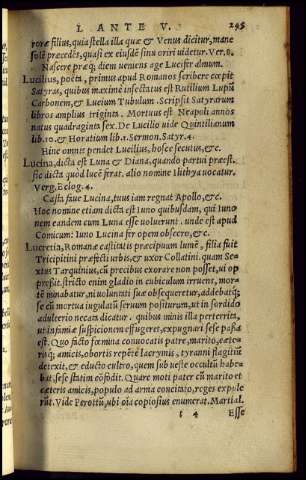 L ANTE V. 295
roræ filius, quia stella illa quæ & Venus dicitur, mane
solẽ præcedẽs, quasi ex eiusdẽ sinu oriri videtur. Ver. 8.
Nascere præq; diem veniens age Lucifer almum.
Lucilius, poëta, primus apud Romanos scribere cœpit
Satyras, quibus maximè insectatus est Rutilium Lupũ
Carbonem, & Lucium Tubulum. Scripsit Satyrarum
libros amplius triginta. Mortuus est Neapoli annos
natus quadraginta sex. De Lucilio vide Quintilianum
lib. 10. & Horatium lib. 1. Sermon. Satyr. 4.
Hinc omnis pendet Lucilius, hosce secutus, &c.
Lucina, dicta est Luna & Diana, quando partui præest.
sic dicta quòd lucẽ ferat. alio nomine Ilithya vocatur.
Verg. Eclog. 4.
Casta faue Lucina, tuus iam regnat Apollo, &c.
Hoc nomine etiam dicta est Iuno quibusdam, qui Iuno
nem eandem cum Luna esse voluerunt. vnde est apud
Comicum: Iuno Lucina fer opem obsecro, &c.
Lucretia, Romanæ castitatis præcipuum lumẽ, filia fuit
Tricipitini præfecti urbis & uxor Collatini. quam Se-
xtus Tarquinius, cũ precibus exorare non posset, ui op
pressit. stricto enim gladio in cubiculum irruens, morte
minabatur, ni voluntati suæ obsequeretur, addebatq;
se cũ mortua iugulatũ seruum positurum, ut in sordido
adulterio necata dicatur. quibus minis illa perterrita,
ut infamiæ suspicionem effugeret, expugnari sese passa
est. Quo facto in domina conuocatis patre, marito, cæte-
risq; amicis, obortis repẽte lacrymis, tyranni flagitiũ
detexit, & educto cultro, quem sub ueste occultũ habe-
bat, sese statim cõfodit. Quare moti pater cũ marito et
cæteris amicis, populo ad arma concitato, reges expule
rũt. Vide Perottũ, ubi ea copiosius enumerat. Martial.
t 4 Esse